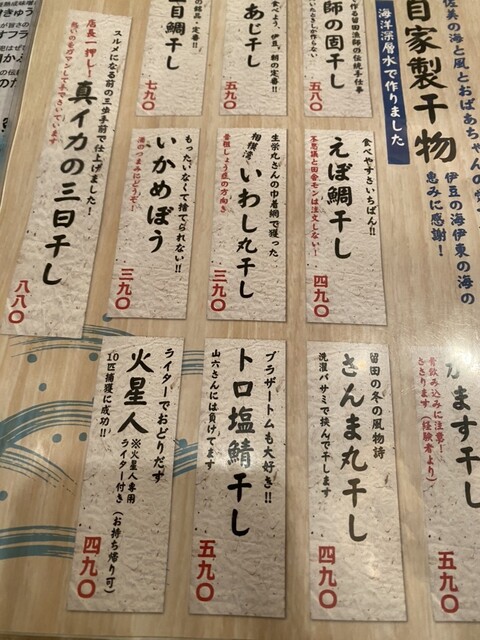 自家製干物
佐美の海と風とおばあちゃんの
伊豆の海伊東の海の
恵みに感謝!
海洋深層水で作りました
作る留田漁師の伝統手仕事
師の固干し
いたときしか作らない
五八〇
食べよう、伊豆、朝の定番!!
あじ干し
五九〇
の銘品・定番!!
目鯛干し
七九〇
スルメになる前の三歩手前で仕上げました!
店長一押し!
真イカの三日干し
熱いのをガマンして手でさいています
八八〇
食べやすさいちばん!!
えぼ鯛干し
不思議と田舎モンは注文しない!
四九〇
生栄丸さんの巾着網で獲った
相模湾 いわし丸干し
骨粗しょう症の方向き
三九〇
もったいなくて捨てられない!!
いかめぼう
酒のつまみにどうぞ!
三九〇
かます干し
骨飲み込みに注意!
ささります(経験者より)
五
留田の冬の風物詩
さんま丸干し
洗濯バサミで挟んで干します
四九〇
ブラザートムも大好き!!
トロ塩鯖干し
山六さんには負けてます
五九〇
ライターでおどりだす
火星人
※火星人専用
ライター付き(お持ち帰り可)
10匹捕獲に成功!!
四九〇